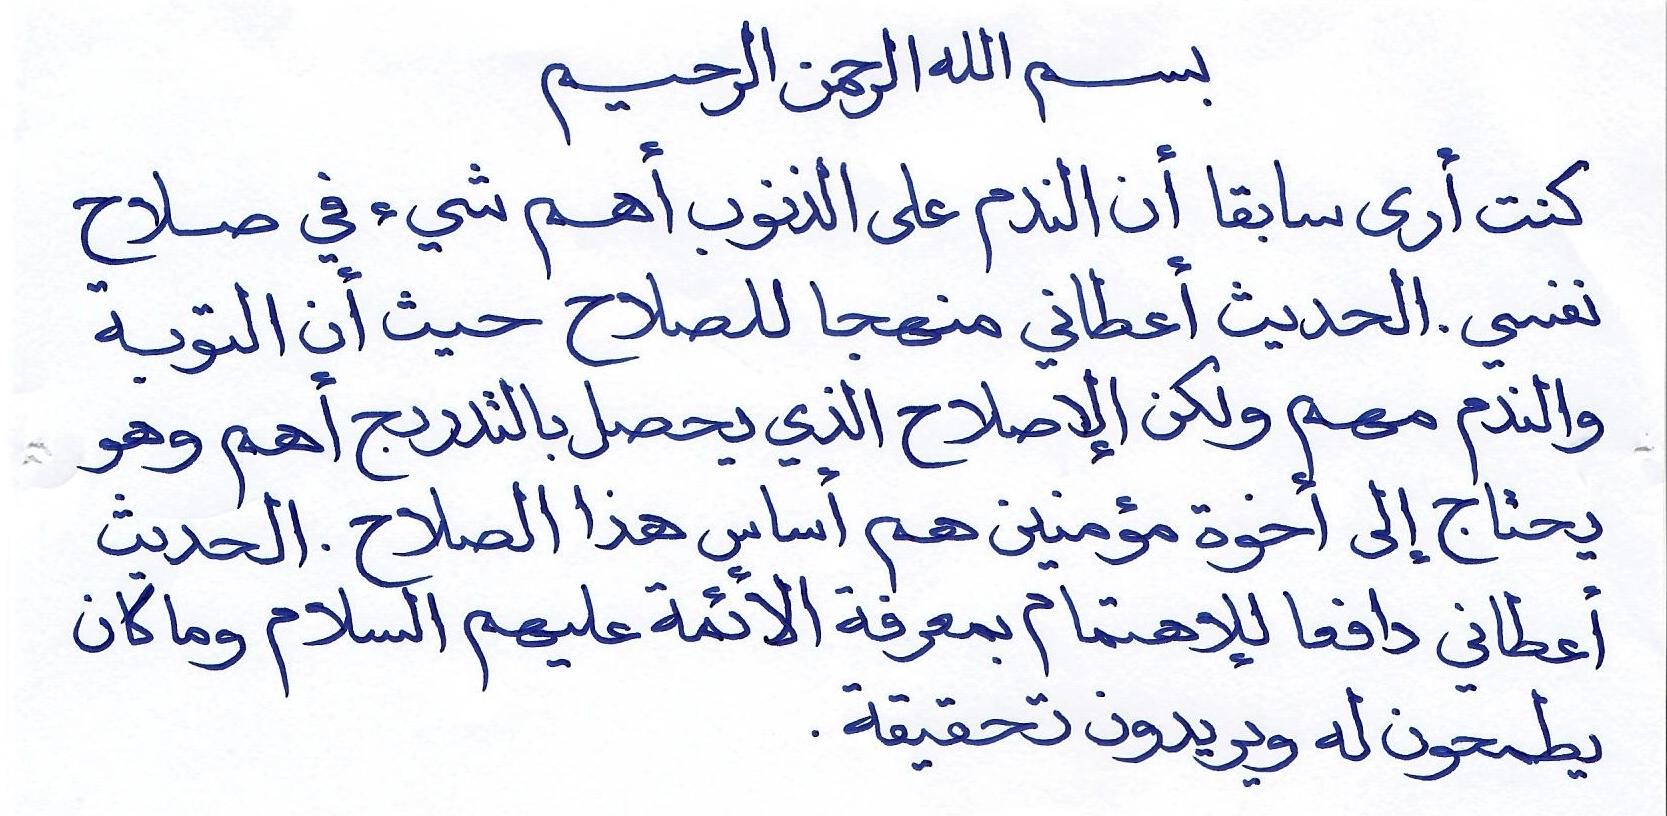 بسم الله الرحمن الرحيم
كنت أرى سابقا أن الندم على الذنوب أهم شيء في صلاح
نفسي . الحديث أعطاني منهجا للصلاح حيث أن التوبة
والندم مهم ولكن الإصلاح الذي يحصل بالتدريج أهم وهو
يحتاج إلى أخوة مؤمنين هم أساس هذا الصلاح . الحديث
أعطاني دافعا للإهتمام بمعرفة الأئمة عليهم السلام وما كان
يطمحون له ويريدون تحقيقة .